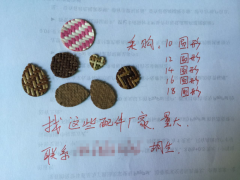 采购: 10 圆形
12 圆形
14 圆形
16 圆形
18 圆形
找这些配件厂家, 量大,
联系